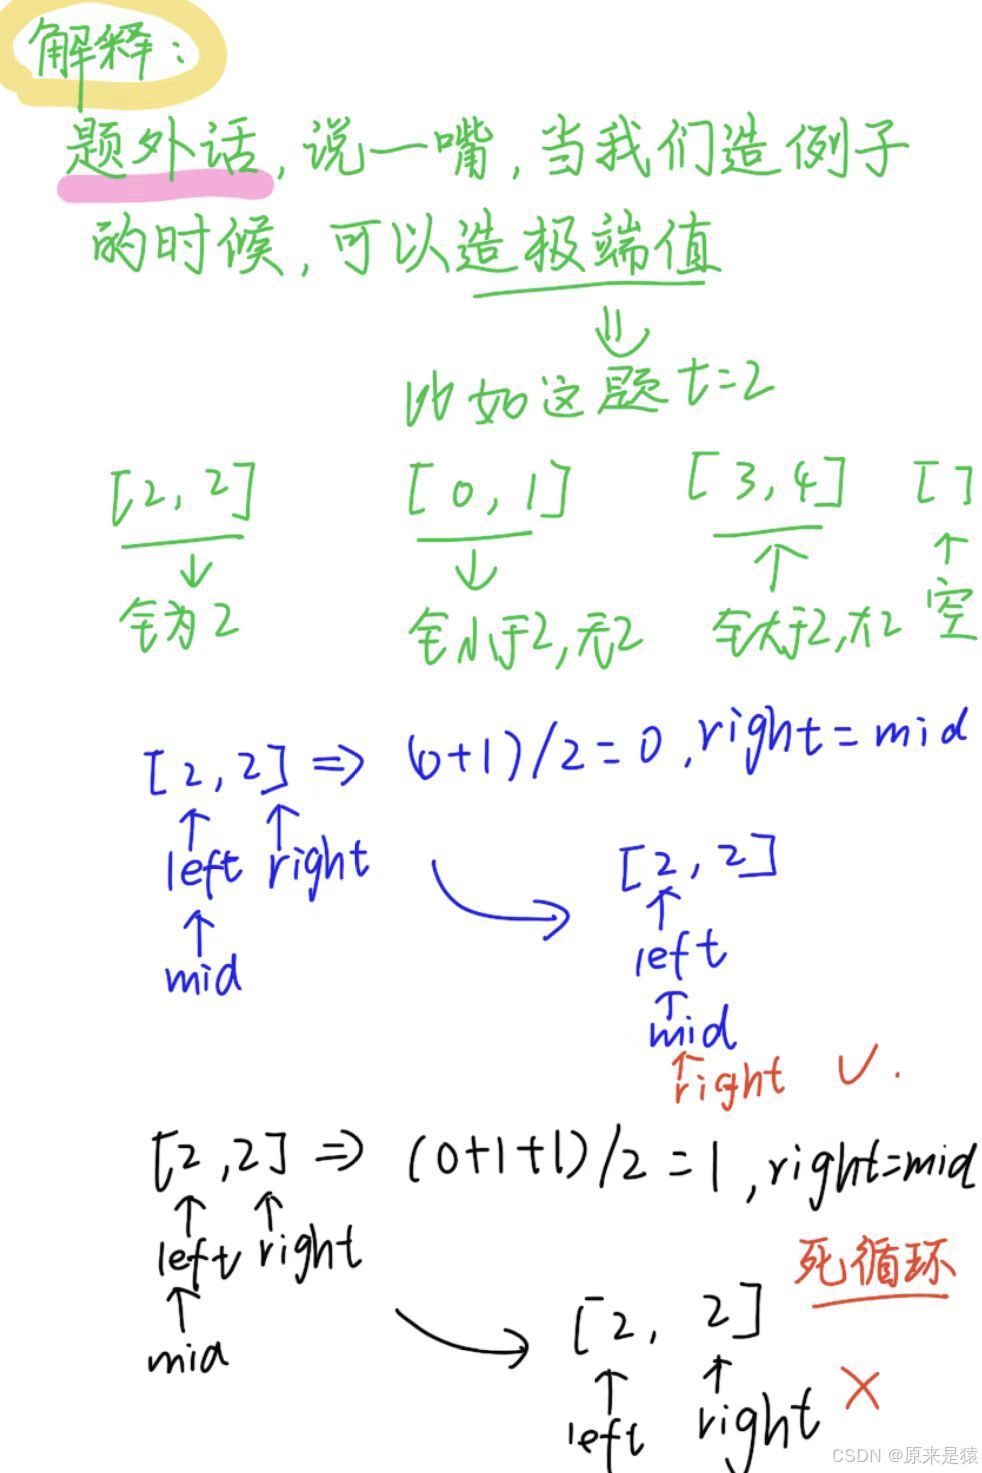 解释：
题外话，说一嘴，当我们造例子
的时候，可以造极端值
比如这题 t=2
[2, 2] [0, 1] [3, 4] []
全为2 全小于2，无2 全大于2，无2 空
[2, 2] => (0+1)/2=0, right=mid
left right
mid
[2, 2]
left
mid
right
[2, 2] => (0+1+1)/2=1, right=mid
left right
mid
死循环
[2, 2]
left right
CSDN @原来是猿